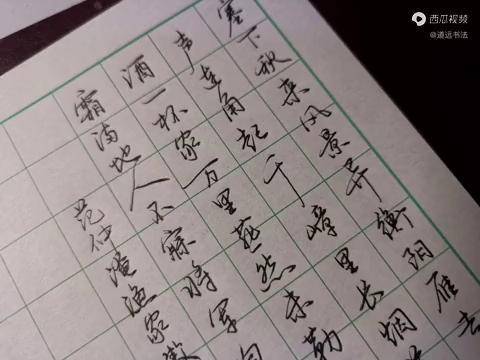 西瓜视频
@道远书法
塞下秋来风景异衡阳雁去
声连角起千嶂里长烟
酒一杯家万里燕然未勒
霜满地人不寐将军白
范仲淹渔家傲